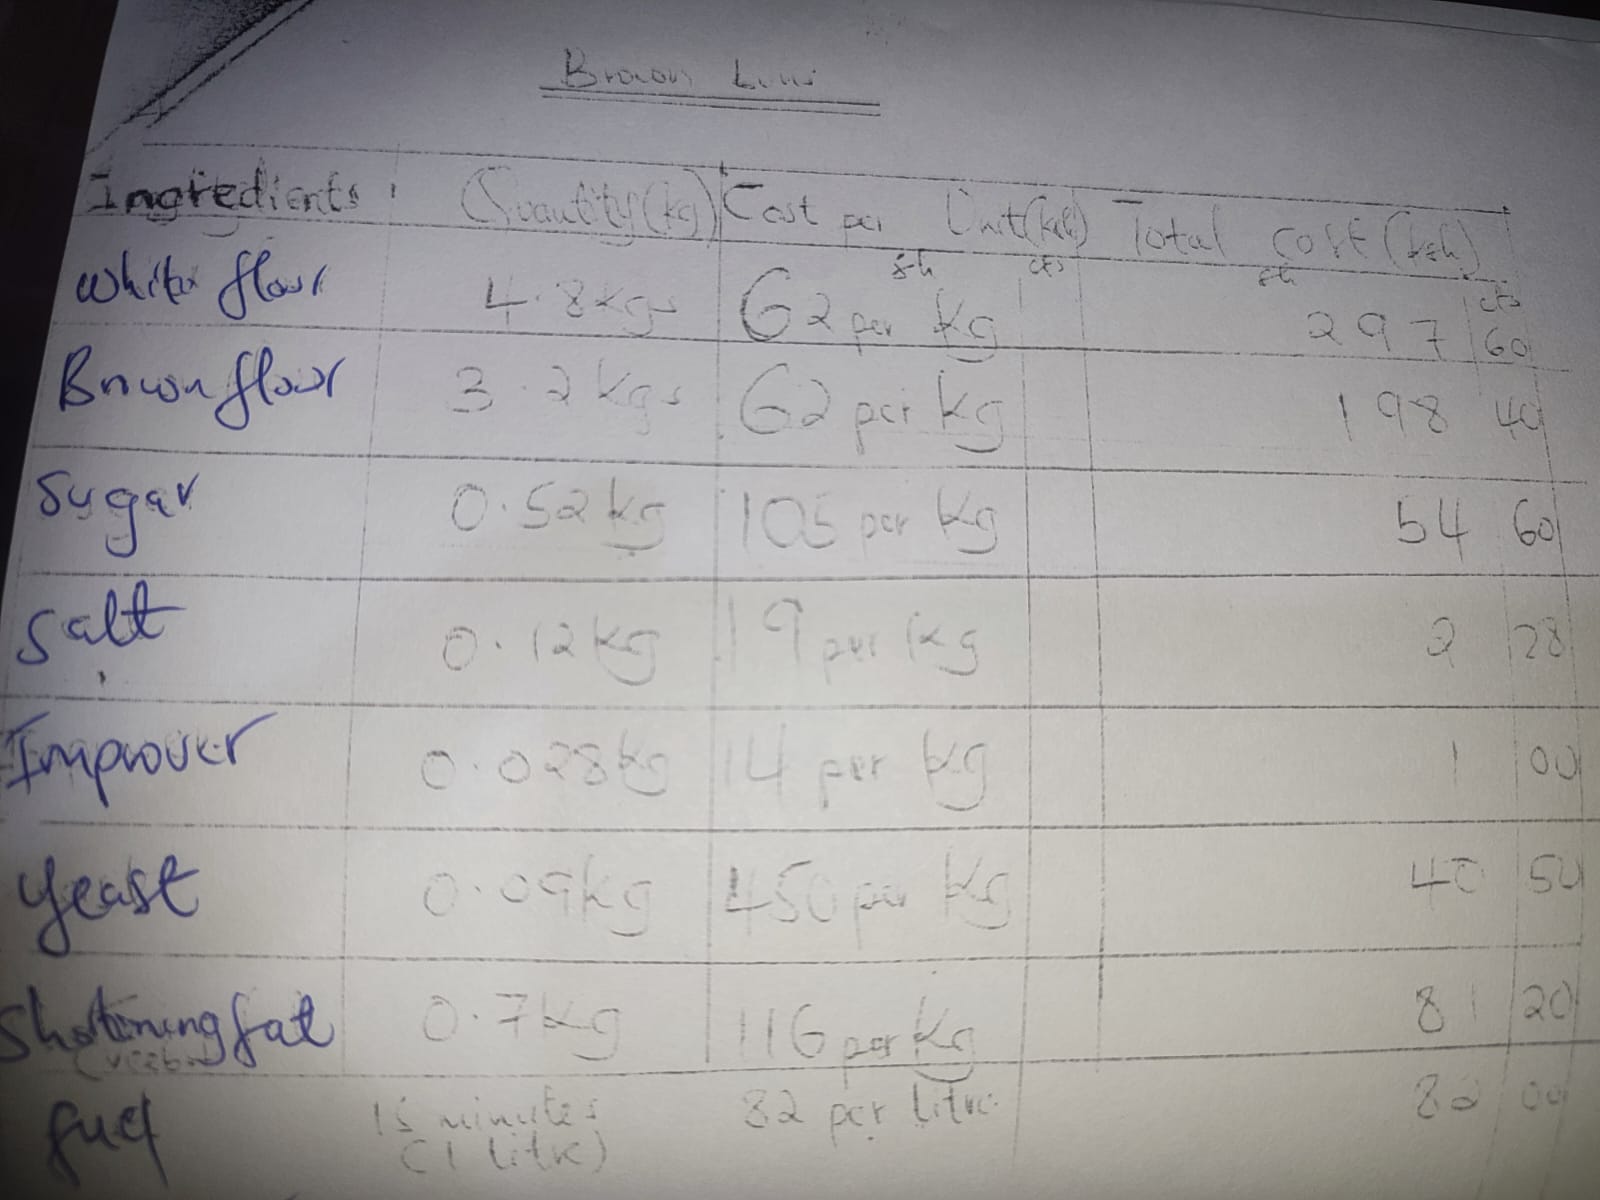 Brown
Ingredients Quantity (kg) Cost per Unit (ksh) Total cost (ksh)
sh cts sh cts
White flour 4.8kgs 62 per kg 297 60
Brown flour 3.2kgs 62 per kg 198 40
Sugar 0.52kg 105 per kg 54 60
Salt 0.12kg 19 per kg 2 28
Improver 0.028kg 14 per kg 1 00
Yeast 0.09kg 450 per kg 40 50
Shortening fat 0.7kg 116 per kg 81 20
fuel 15 minutes 82 per litre 82 00
(1 litre)